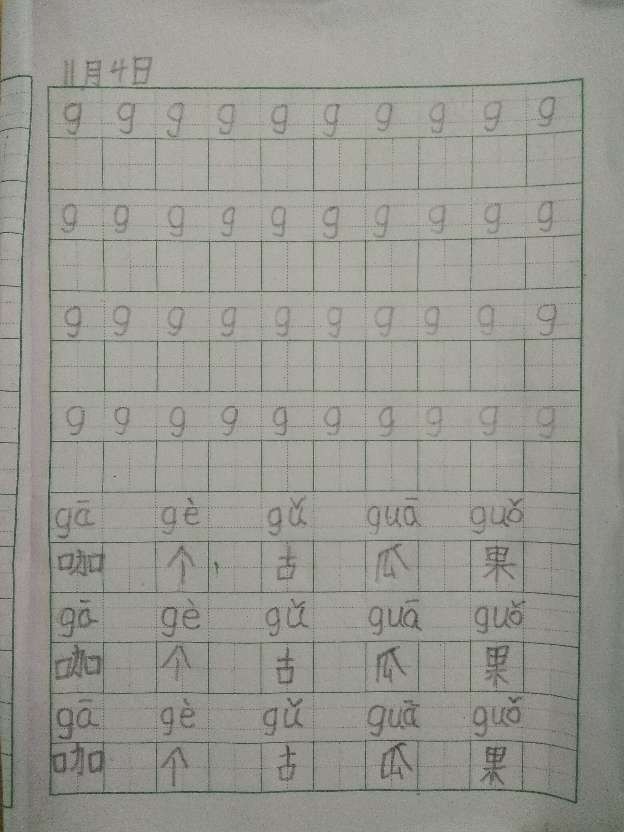 11月4日
g g g g g g g g g g
g g g g g g g g g g
g g g g g g g g g g
g g g g g g g g g g
gā gè gǔ guā guǒ
咖 个 古 瓜 果
gā gè gǔ guā guǒ
咖 个 古 瓜 果
gā gè gǔ guā guǒ
咖 个 古 瓜 果